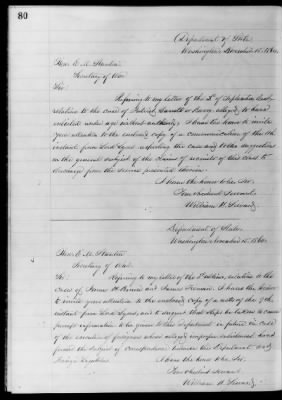 80
Department of State
Washington, November 15, 186
Hon. E. M. Stanton
Secretary of War
Sir:
Referring to my letter of the 2d of September last,
relative to the cases of
enlisted under age without authority, I have the honor to invite
your attention to the enclosed copy of a communication of the 11th
instant from Lord Lyons respecting the case and other suggestions
on the general subject of the claims of minors of this class to
discharge from the service
I have the honor to be, Sir,
Your obedient Servant,
William H. Seward
Department of State
Washington November 15, 186
Hon. E. M. Stanton
Secretary of War.
Sir, Referring to my letter of the instant, relative to the
cases of James and James I have the honor
to invite your attention to the enclosed copy of a note of the 9th
instant from Lord Lyons, and to suggest that steps be taken to cause
information to be given to this Department in future in case
of the of persons whose alleged improper enlistment have
formed the subject of correspondence between this Department and
Foreign Legations.
I have the honor to be, Sir,
Your obedient servant
William H. Seward.